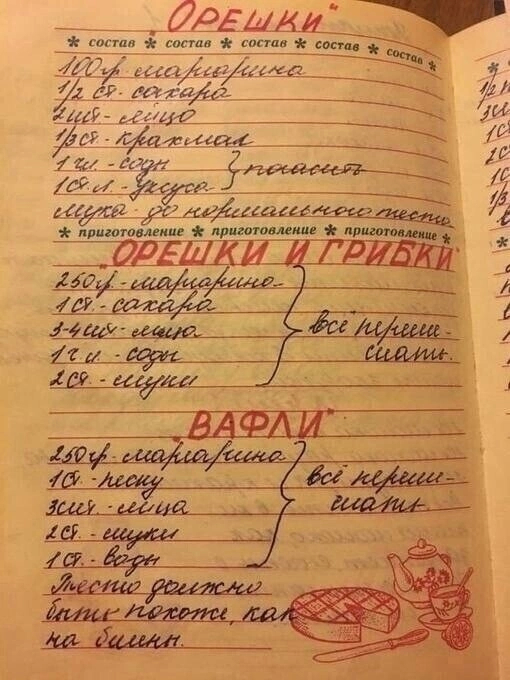 "ОРЕШКИ"
* состав * состав * состав * состав * состав *
100гр. маргарина
1/2 ст. сахара
2шт. яйцо
1/3 ст. крахмал
1 чл. соды } погасить
1 ст. л. уксуса
мука до нормального теста
* приготовление * приготовление * приготовление *
"ОРЕШКИ И ГРИБКИ"
250гр. маргарина
1 ст. сахара
3-4 шт. яйца } всё переме-
1 ч л. соды шать.
2 ст. муки
"ВАФЛИ"
250гр. маргарина
1 ст. песку } всё переме-
3шт. яйца шать
2 ст. муки
1 ст. воды
Тесто должно
быть похоже, как
на блины.